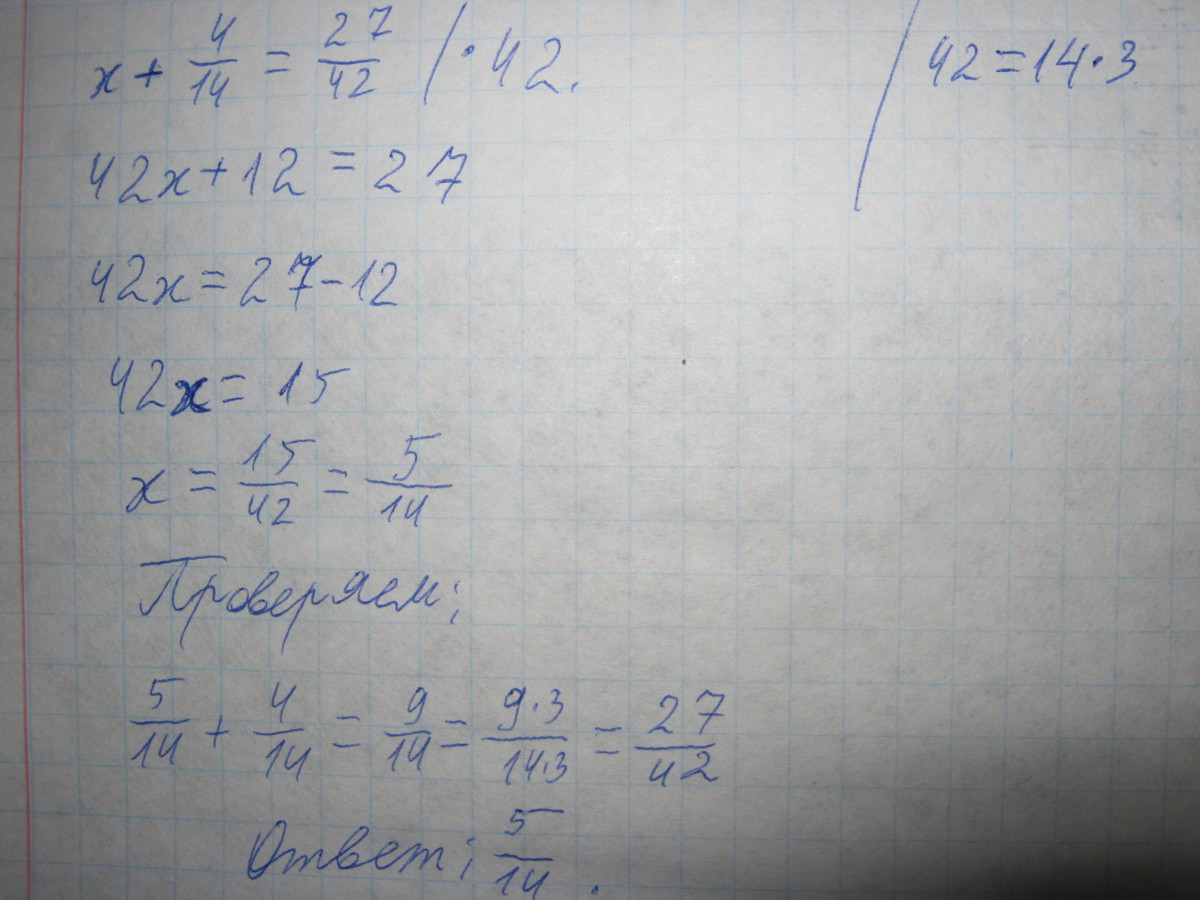 x + 4/14 = 27/42 / · 42. / 42 = 14 · 3
42x + 12 = 27
42x = 27 - 12
42x = 15
x = 15/42 = 5/14
Проверяем:
5/14 + 4/14 = 9/14 = 9·3/14·3 = 27/42
Ответ: 5/14.